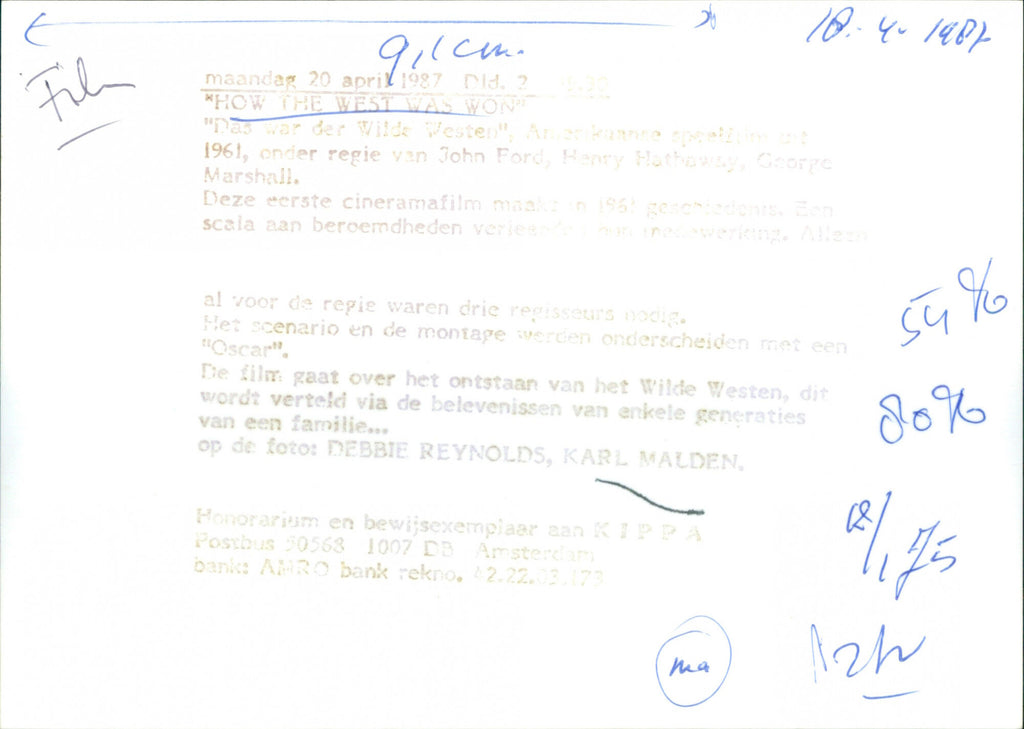 18.4.1987
9,1 cm.
Film
maandag 20 april 1987 Dld. 2
"HOW THE WEST WAS WON"
"Das war der Wilde Westen", Amerikaanse speelfilm uit
1961, onder regie van John Ford, Henry Hathaway, George
Marshall.
Deze eerste cineramafilm maakt in 1961 geschiedenis. Een
scala aan beroemdheden verleende hun medewerking. Alleen
al voor de regie waren drie regisseurs nodig.
Het scenario en de montage werden onderscheiden met een
"Oscar".
De film gaat over het ontstaan van het Wilde Westen, dit
wordt verteld via de belevenissen van enkele generaties
van een familie...
op de foto: DEBBIE REYNOLDS, KARL MALDEN.
Honorarium en bewijsexemplaar aan K I P P A
Postbus 50568 1007 DB Amsterdam
bank: AMRO bank rekno. 42.22.03.173
54%
80%
12/1,75
ma